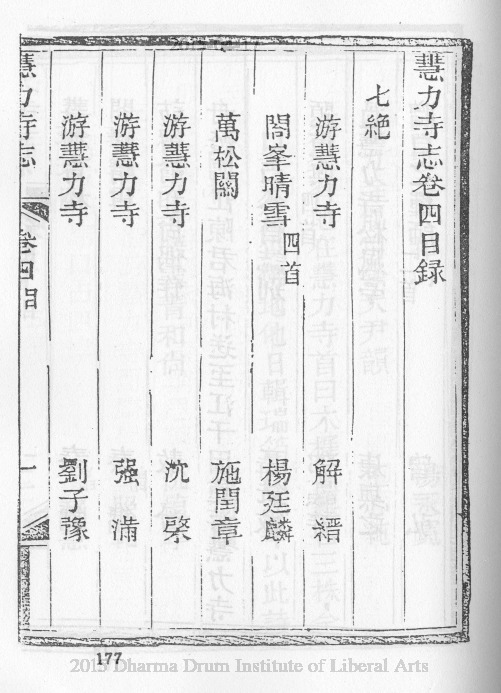 慧力寺志卷四目録
七絶
游慧力寺 解縉
閤峯晴雪 四首 楊廷麟
萬松關 施閏章
游慧力寺 沈棨
游慧力寺 強滿
游慧力寺 劉子豫
慧力寺志 卷四目 一
177
2015 Dharma Drum Institute of Liberal Arts